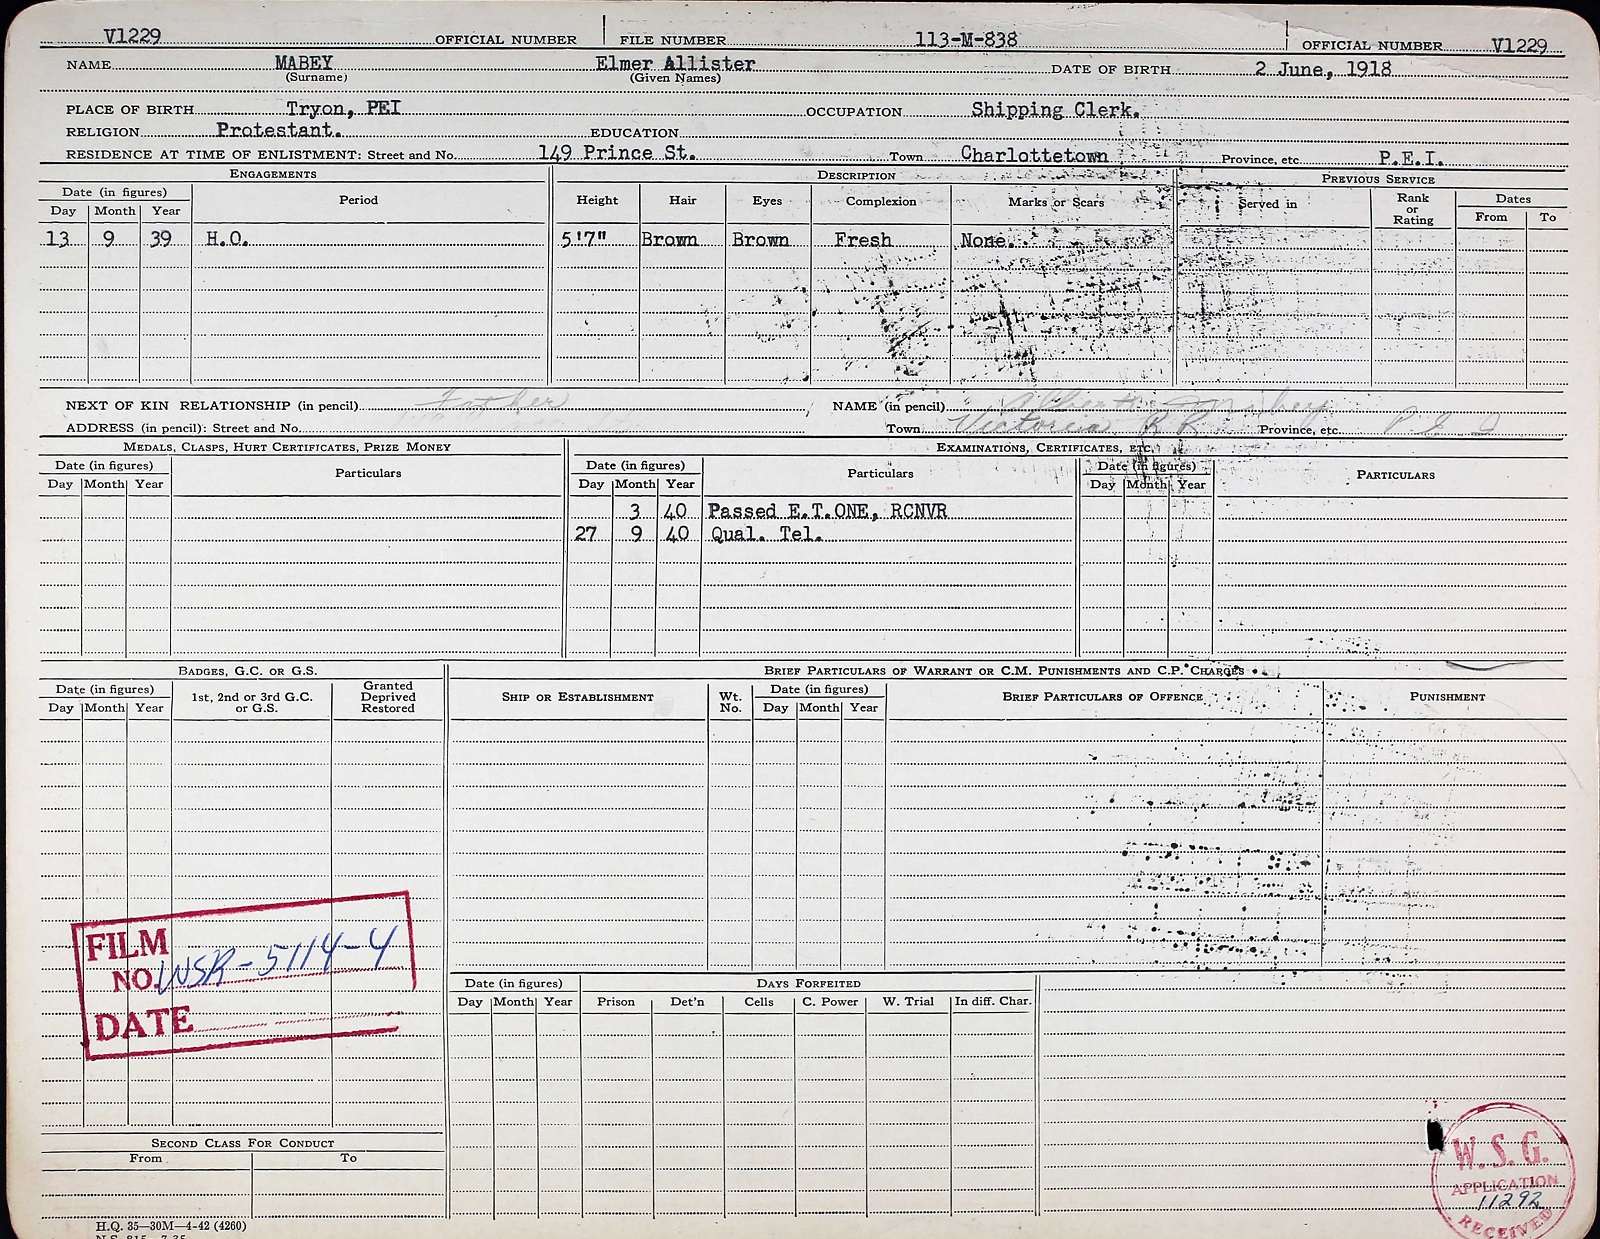 V1229 OFFICIAL NUMBER FILE NUMBER 113-M-838 OFFICIAL NUMBER V1229
NAME MABEY Elmer Allister DATE OF BIRTH 2 June, 1918
(Surname) (Given Names)
PLACE OF BIRTH Tryon, PEI OCCUPATION Shipping Clerk.
RELIGION Protestant. EDUCATION
RESIDENCE AT TIME OF ENLISTMENT: Street and No. 149 Prince St. Town Charlottetown Province, etc. P.E.I.
ENGAGEMENTS DESCRIPTION PREVIOUS SERVICE
Date (in figures) Period Height Hair Eyes Complexion Marks or Scars Served in Rank or Rating Dates
Day Month Year From To
13 9 39 H.O. 5'7" Brown Brown Fresh None.
NEXT OF KIN RELATIONSHIP (in pencil) Father NAME (in pencil) Mabey
ADDRESS (in pencil): Street and No. Town Victoria R R Province, etc. P E I
MEDALS, CLASPS, HURT CERTIFICATES, PRIZE MONEY EXAMINATIONS, CERTIFICATES, ETC.
Date (in figures) Particulars Date (in figures) Particulars Date (in figures) PARTICULARS
Day Month Year Day Month Year Day Month Year
3 40 Passed E.T.ONE, RCNVR
27 9 40 Qual. Tel.
BADGES, G.C. OR G.S. BRIEF PARTICULARS OF WARRANT OR C.M. PUNISHMENTS AND C.P. CHARGES
Date (in figures) 1st, 2nd or 3rd G.C. or G.S. Granted Deprived Restored SHIP OR ESTABLISHMENT Wt. No. Date (in figures) BRIEF PARTICULARS OF OFFENCE PUNISHMENT
Day Month Year Day Month Year
FILM
NO. WSR-5114-4
DATE
Date (in figures) DAYS FORFEITED
Day Month Year Prison Det'n Cells C. Power W. Trial In diff. Char.
SECOND CLASS FOR CONDUCT
From To
W.S.G.
APPLICATION
11292
RECEIVED
H.Q. 35—30M—4-42 (4260)
N.S. 815—7-35